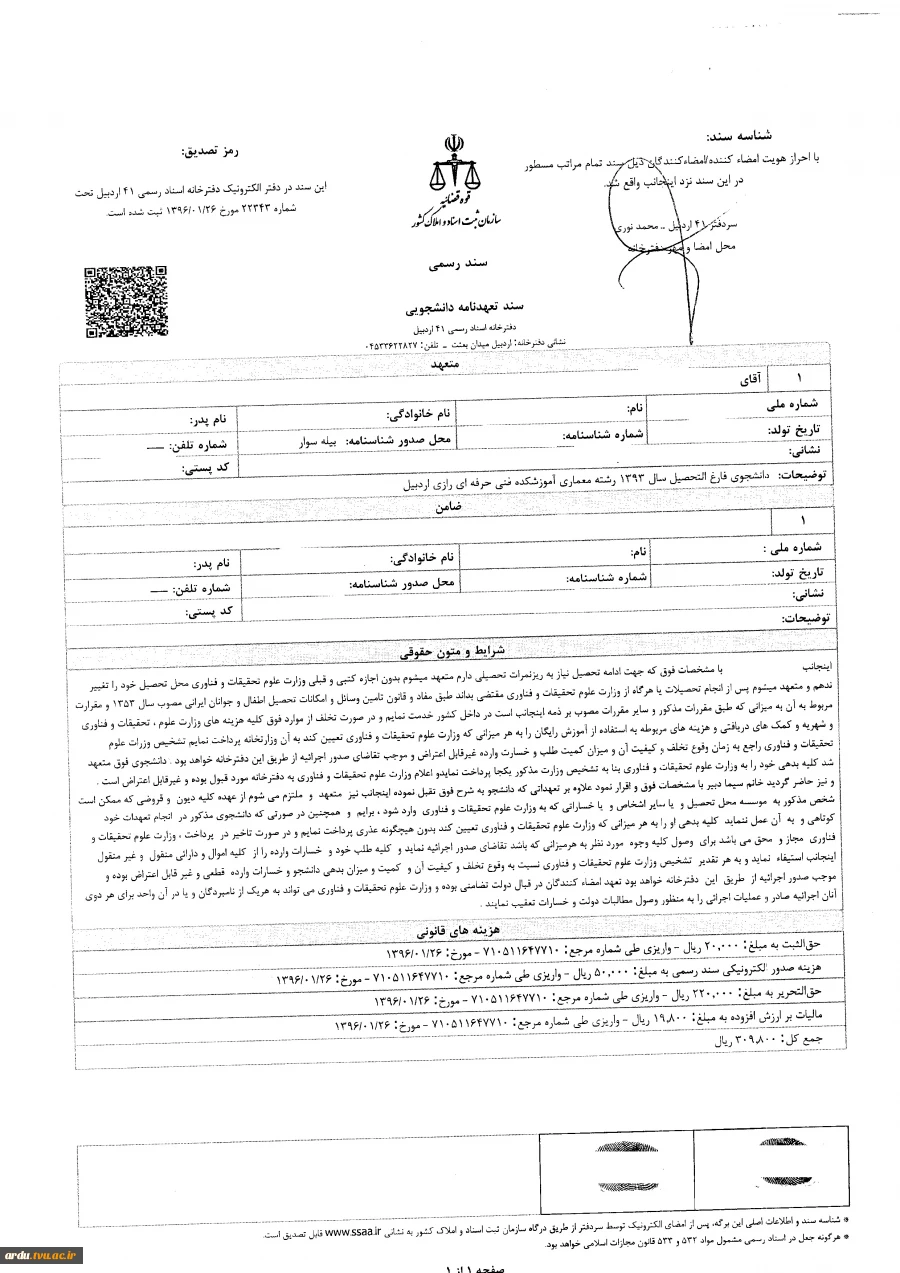 شناسه سند:
با احراز هویت امضاء کننده/امضاءکنندگان ذیل سند تمام مراتب مسطور
در این سند نزد اینجانب واقع شد.
سردفتر ۴۱ اردبیل .. محمد نوری
محل امضا و مهر دفترخانه
قوه قضائیه
سازمان ثبت اسناد و املاک کشور
سند رسمی
سند تعهدنامه دانشجویی
دفترخانه اسناد رسمی ۴۱ اردبیل
نشانی دفترخانه: اردبیل میدان بعثت - تلفن: ۰۴۵۳۳۶۲۲۸۲۷
رمز تصدیق:
این سند در دفتر الکترونیک دفترخانه اسناد رسمی ۴۱ اردبیل تحت
شماره ۲۲۳۴۳ مورخ ۱۳۹۶/۰۱/۲۶ ثبت شده است.
متعهد
۱ آقای
شماره ملی نام: نام خانوادگی: نام پدر:
تاریخ تولد: شماره شناسنامه: محل صدور شناسنامه: بیله سوار شماره تلفن: ---
نشانی: کد پستی:
توضیحات: دانشجوی فارغ التحصیل سال ۱۳۹۳ رشته معماری آموزشکده فنی حرفه ای رازی اردبیل
ضامن
۱
شماره ملی : نام: نام خانوادگی: نام پدر:
تاریخ تولد: شماره شناسنامه: محل صدور شناسنامه: شماره تلفن: ---
نشانی: کد پستی:
توضیحات:
شرایط و متون حقوقی
اینجانب با مشخصات فوق که جهت ادامه تحصیل نیاز به ریزنمرات تحصیلی دارم متعهد میشوم بدون اجازه کتبی و قبلی وزارت علوم تحقیقات و فناوری محل تحصیل خود را تغییر
ندهم و متعهد میشوم پس از انجام تحصیلات یا هرگاه از وزارت علوم تحقیقات و فناوری مقتضی بداند طبق مفاد و قانون تامین وسائل و امکانات تحصیل اطفال و جوانان ایرانی مصوب سال ۱۳۵۳ و مقررات
مربوط به آن به میزانی که طبق مقررات مذکور و سایر مقررات مصوب بر ذمه اینجانب است در داخل کشور خدمت نمایم و در صورت تخلف از موارد فوق کلیه هزینه های وزارت علوم ، تحقیقات و فناوری
و شهریه و کمک های دریافتی و هزینه های مربوطه به استفاده از آموزش رایگان را به هر میزانی که وزارت علوم تحقیقات و فناوری تعیین کند به آن وزارتخانه پرداخت نمایم تشخیص وزرات علوم
تحقیقات و فناوری راجع به زمان وقوع تخلف و کیفیت آن و میزان کمیت طلب و خسارت وارده غیرقابل اعتراض و موجب تقاضای صدور اجرائیه از طریق این دفترخانه خواهد بود . دانشجوی فوق متعهد
شد کلیه بدهی خود را به وزارت علوم تحقیقات و فناوری بنا به تشخیص وزارت مذکور یکجا پرداخت نمایدو اعلام وزارت علوم تحقیقات و فناوری به دفترخانه مورد قبول بوده و غیرقابل اعتراض است .
و نیز حاضر گردید خانم سیما دبیر با مشخصات فوق و اقرار نمود علاوه بر تعهداتی که دانشجو به شرح فوق تقبل نموده اینجانب نیز متعهد و ملتزم می شوم از عهده کلیه دیون و قروضی که ممکن است
شخص مذکور به موسسه محل تحصیل و یا سایر اشخاص و یا خساراتی که به وزارت علوم تحقیقات و فناوری وارد شود ، برایم و همچنین در صورتی که دانشجوی مذکور در انجام تعهدات خود
کوتاهی و به آن عمل ننماید کلیه بدهی او را به هر میزانی که وزارت علوم تحقیقات و فناوری تعیین کند بدون هیچگونه عذری پرداخت نمایم و در صورت تاخیر در پرداخت ، وزارت علوم تحقیقات و
فناوری مجاز و محق می باشد برای وصول کلیه وجوه مورد نظر به هرمیزانی که باشد تقاضای صدور اجرائیه نماید و کلیه طلب خود و خسارات وارده را از کلیه اموال و دارائی منقول و غیر منقول
اینجانب استیفاء نماید و به هر تقدیر تشخیص وزارت علوم تحقیقات و فناوری نسبت به وقوع تخلف و کیفیت آن و کمیت و میزان بدهی دانشجو و خسارات وارده قطعی و غیر قابل اعتراض بوده و
موجب صدور اجرائیه از طریق این دفترخانه خواهد بود تعهد امضاء کنندگان در قبال دولت تضامنی بوده و وزارت علوم تحقیقات و فناوری می تواند به هریک از نامبردگان و یا در آن واحد برای هر دوی
آنان اجرائیه صادر و عملیات اجرائی را به منظور وصول مطالبات دولت و خسارات تعقیب نمایند .
هزینه های قانونی
حق‌الثبت به مبلغ: ۲۰,۰۰۰ ریال - واریزی طی شماره مرجع: ۷۱۰۵۱۱۶۴۷۷۱۰ - مورخ: ۱۳۹۶/۰۱/۲۶
هزینه صدور الکترونیکی سند رسمی به مبلغ: ۵۰,۰۰۰ ریال - واریزی طی شماره مرجع: ۷۱۰۵۱۱۶۴۷۷۱۰ - مورخ: ۱۳۹۶/۰۱/۲۶
حق‌التحریر به مبلغ: ۲۲۰,۰۰۰ ریال - واریزی طی شماره مرجع: ۷۱۰۵۱۱۶۴۷۷۱۰ - مورخ: ۱۳۹۶/۰۱/۲۶
مالیات بر ارزش افزوده به مبلغ: ۱۹,۸۰۰ ریال - واریزی طی شماره مرجع: ۷۱۰۵۱۱۶۴۷۷۱۰ - مورخ: ۱۳۹۶/۰۱/۲۶
جمع کل: ۳۰۹,۸۰۰ ریال
* شناسه سند و اطلاعات اصلی این برگه، پس از امضای الکترونیک توسط سردفتر از طریق درگاه سازمان ثبت اسناد و املاک کشور به نشانی www.ssaa.ir قابل تصدیق است.
* هرگونه جعل در اسناد رسمی مشمول مواد ۵۳۲ و ۵۳۳ قانون مجازات اسلامی خواهد بود.
صفحه ۱ از ۱
ardu.tvu.ac.ir